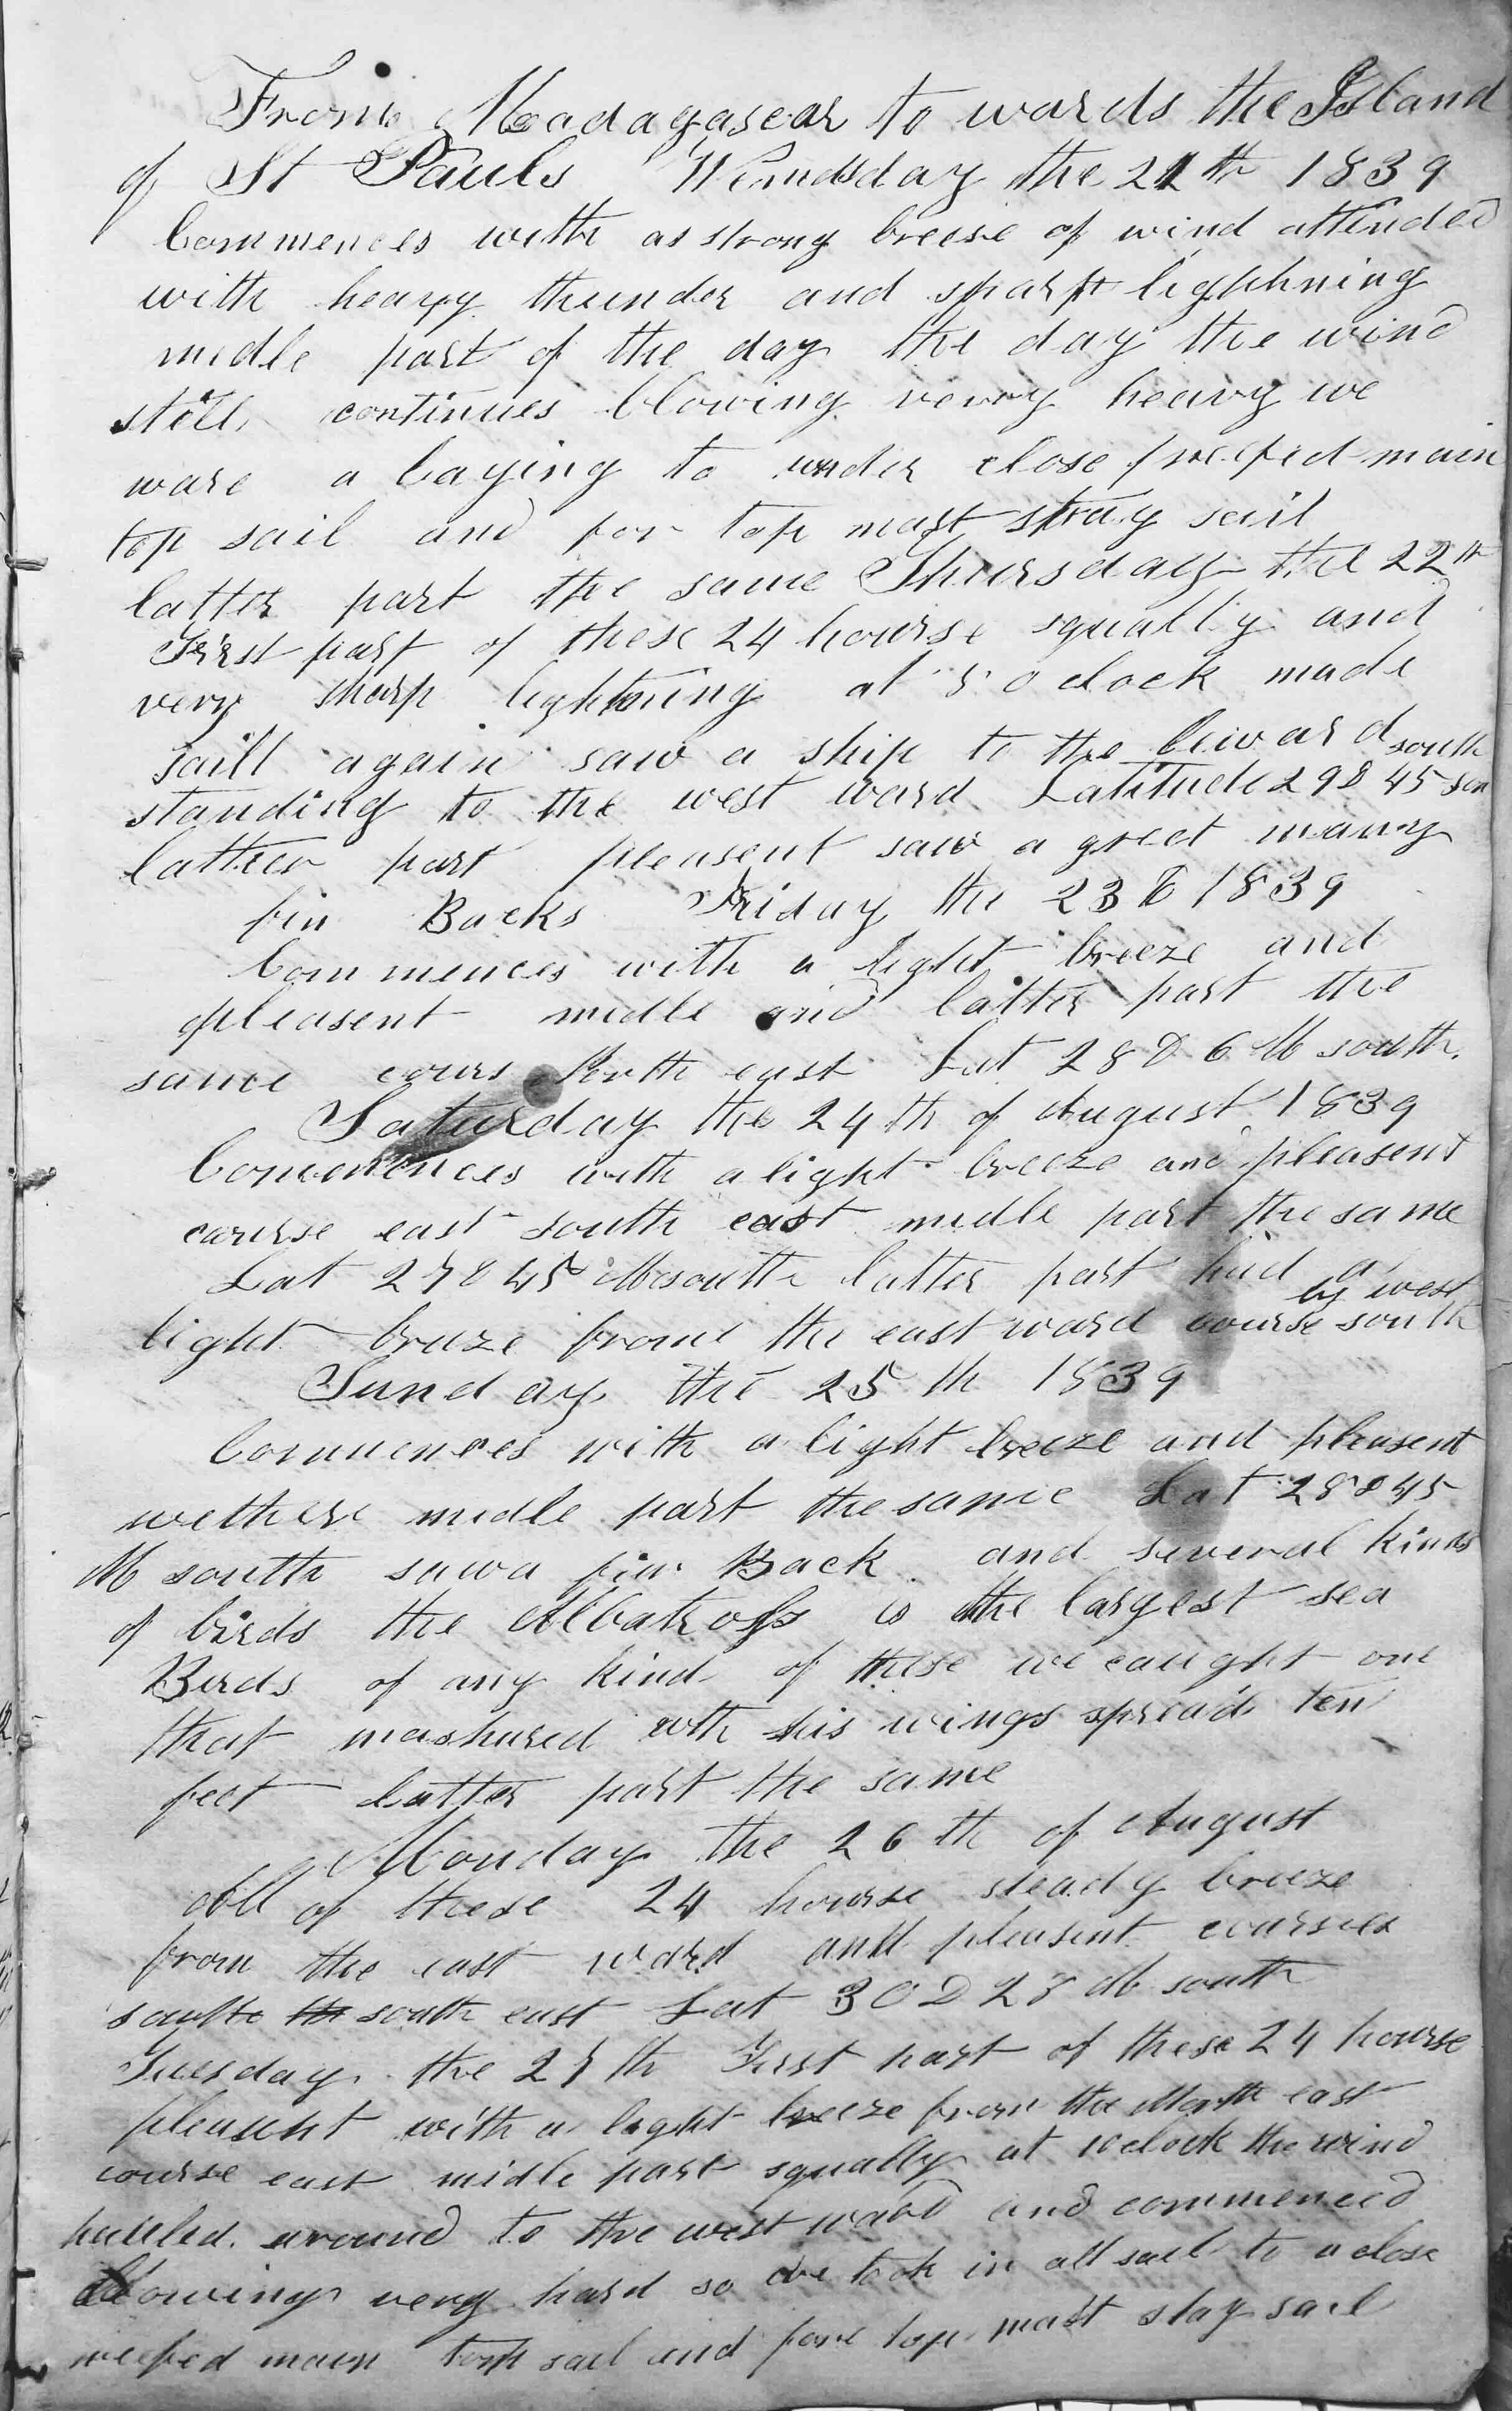 From Madagascar to wards the Island
of St Pauls Wendsday the 21th 1839
Commences with as strong breese of wind attended
with heavy thunder and sharp lighhning
midle part of the day the day the wind
still continues blowing verry heavy we
ware a laying to under close reefed main
top sail and for top mast stray sail
latter part the same Thursday the 22th
First part of these 24 hourse squally and
very sharp lightning at 5 o clock made
saill again saw a ship to the leiward
standing to the west ward Latitude 29D 45 south
latter part pleasent saw a greet many
fin Backs Friday the 23 1839
Commences with a light breeze and
pleasent midle and latter part the
same cours North east Lat 28 D 6 M south.
Saturday the 24th of August 1839
Commences with a light breeze and pleasent
caurse east south east midle part the same
Lat 27D 45 M south latter part had a
light breze frome the east ward course south by west
Sunday the 25 th 1839
Commences with a light breeze and pleasent
wethere midle part the same Lat 28D 45
M south sawa fin Back and several kinds
of birds the Albatross is the largest sea
Birds of any kind of these we caught one
that mashured with his wings spread ten
feet latter part the same
Monday the 26 th of August
All of these 24 hourse steady breeze
from the east ward and pleasent courses
south south east Lat 30 D 28 M south
Tuesday the 27 th First part of these 24 hourse
pleasent with a light breeze from the North east
course east midle part squally at oclock the wind
hauled around to the west ward and commenced
blowing very hard so we took in all sail to a close
reefed main top sail and fore top mast stay sail